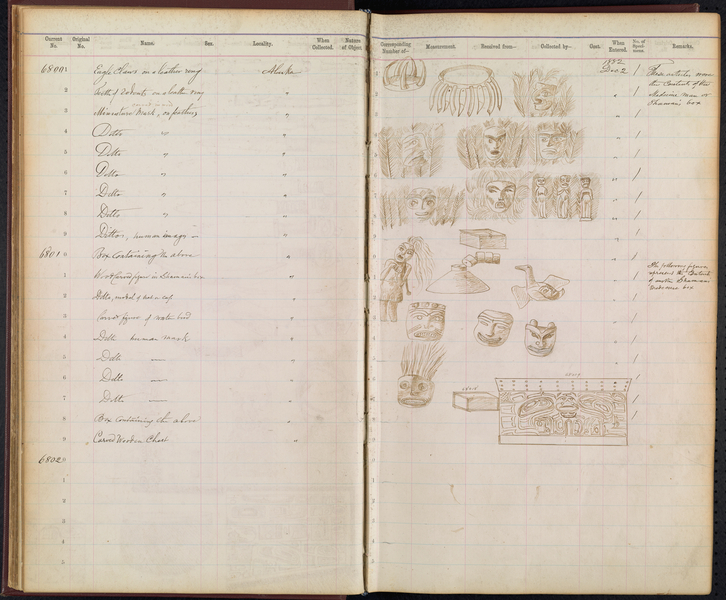 Current No.
Original No.
Name.
Sex.
Locality.
When Collected.
Nature of Object
68001 Eagle Claws on a leather ring Alaska
2 Teeth of Rodents on a leather ring "
3 Miniature Mask, on feathers "
4 Ditto " "
5 Ditto " "
6 Ditto " "
7 Ditto " "
8 Ditto " "
9 Ditto, human image "
68010 Box containing the above "
1 Wood Carved figure in Shaman's box "
2 Ditto, model of hat or cap "
3 Carved figure of water bird "
4 Ditto human mask "
5 Ditto "
6 Ditto "
7 Ditto "
8 Box containing the above "
9 Carved Wooden Chest "
68020
1
2
3
4
5
Corresponding Number of—
Measurement.
Received from—
Collected by—
Cost.
When Entered.
No. of Specimens.
Remarks.
1882
Dec 2 / These articles were
the Contents of the
Medicine man or
Shaman's box
The following figures
represent the Contents
of another Shaman's
box